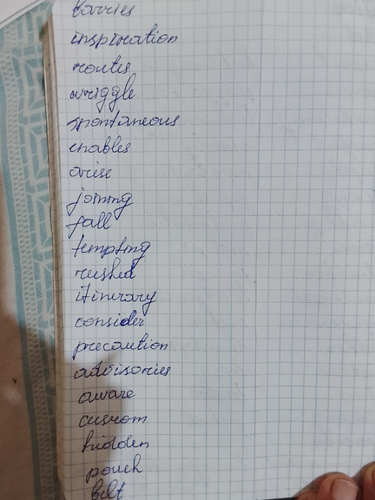 barries
inspiration
routes
wriggle
spontaneous
enables
arise
joining
fall
tempting
rushed
itinerary
consider
precaution
advisories
aware
custom
hidden
pouch
belt